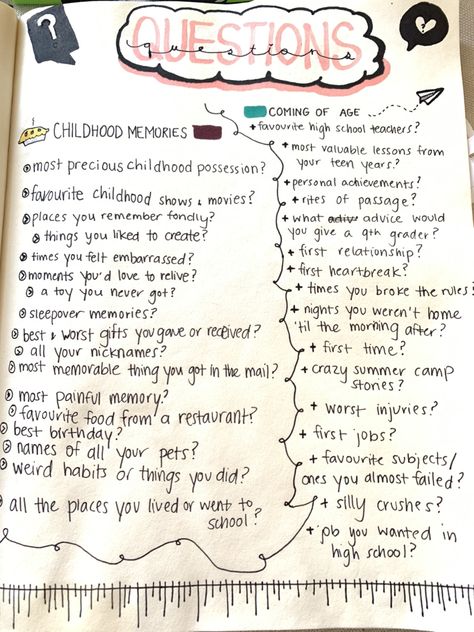 QUESTIONS
questions
?
CHILDHOOD MEMORIES
most precious childhood possession?
favourite childhood shows & movies?
places you remember fondly?
things you liked to create?
times you felt embarrassed?
moments you'd love to relive?
a toy you never got?
sleepover memories?
best & worst gifts you gave or received?
all your nicknames?
most memorable thing you got in the mail?
most painful memory?
favourite food from a restaurant?
best birthday?
names of all your pets?
weird habits or things you did?
all the places you lived or went to
school?
COMING OF AGE
+ favourite high school teachers?
+ most valuable lessons from
your teen years?
+ personal achievements?
+ rites of passage?
+ what advice would
you give a 9th grader?
+ first relationship?
+ first heartbreak?
+ times you broke the rules?
+ nights you weren't home
'til the morning after?
+ first time?
+ crazy summer camp
stories?
+ worst injuries?
+ first jobs?
+ favourite subjects/
ones you almost failed?
+ silly crushes?
+ job you wanted in
high school?